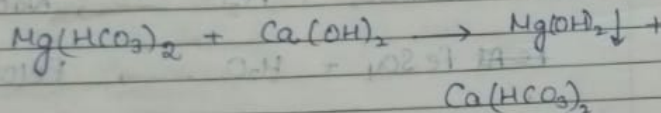 Mg(HCO₃)₂ + Ca(OH)₂ ⟶ Mg(OH)₂↓ +
Ca(HCO₃)₂